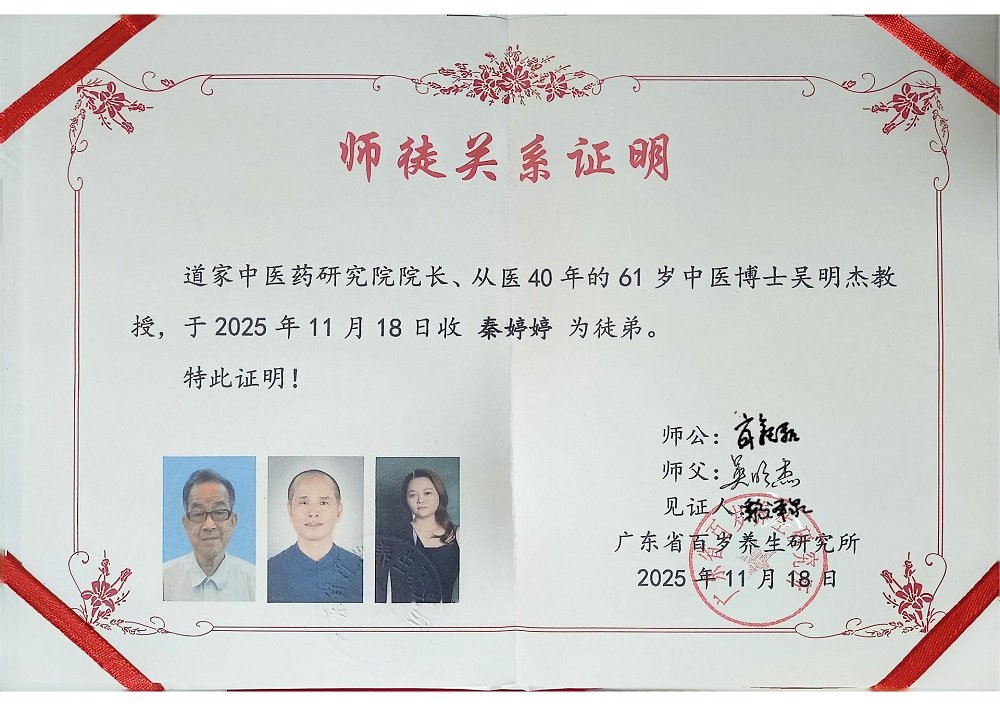 师徒关系证明
道家中医药研究院院长、从医40年的61岁中医博士吴明杰教
授，于2025年11月18日收 秦婷婷 为徒弟。
特此证明！
师公：
师父：吴明杰
见证人
广东省百岁养生研究所
2025年11月18日